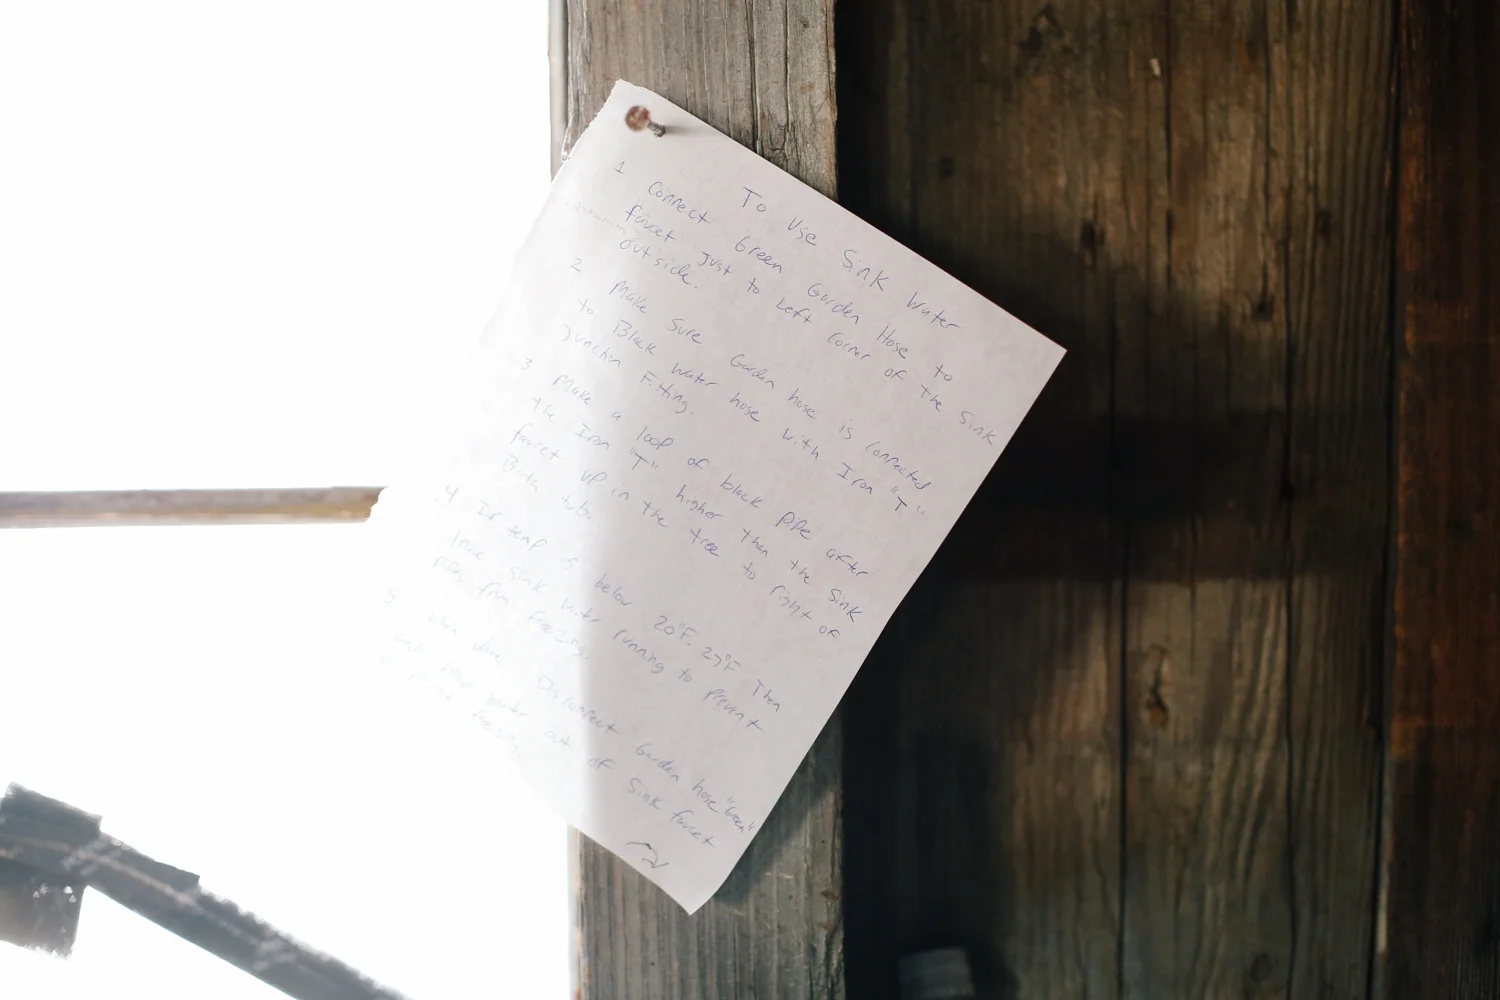 To Use Sink Water
1 Connect Green Garden Hose to
faucet just to Left corner of the Sink
outside.
2 Make Sure Garden hose is connected
to Black Water hose with Iron "T"
junction Fitting.
3 Make a loop of black pipe after
the Iron "T" higher than the Sink
faucet up in the tree to right of
Bath tub.
4 If temp is below 20°F. 27°F Then
leave Sink Water running to prevent
from freezing.
5 When done Disconnect Garden hose "Green"
and water out of Sink faucet
freezing.